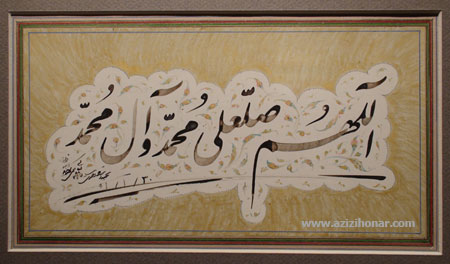 اللهم صل علی محمد و آل محمد
www.azizihonar.com